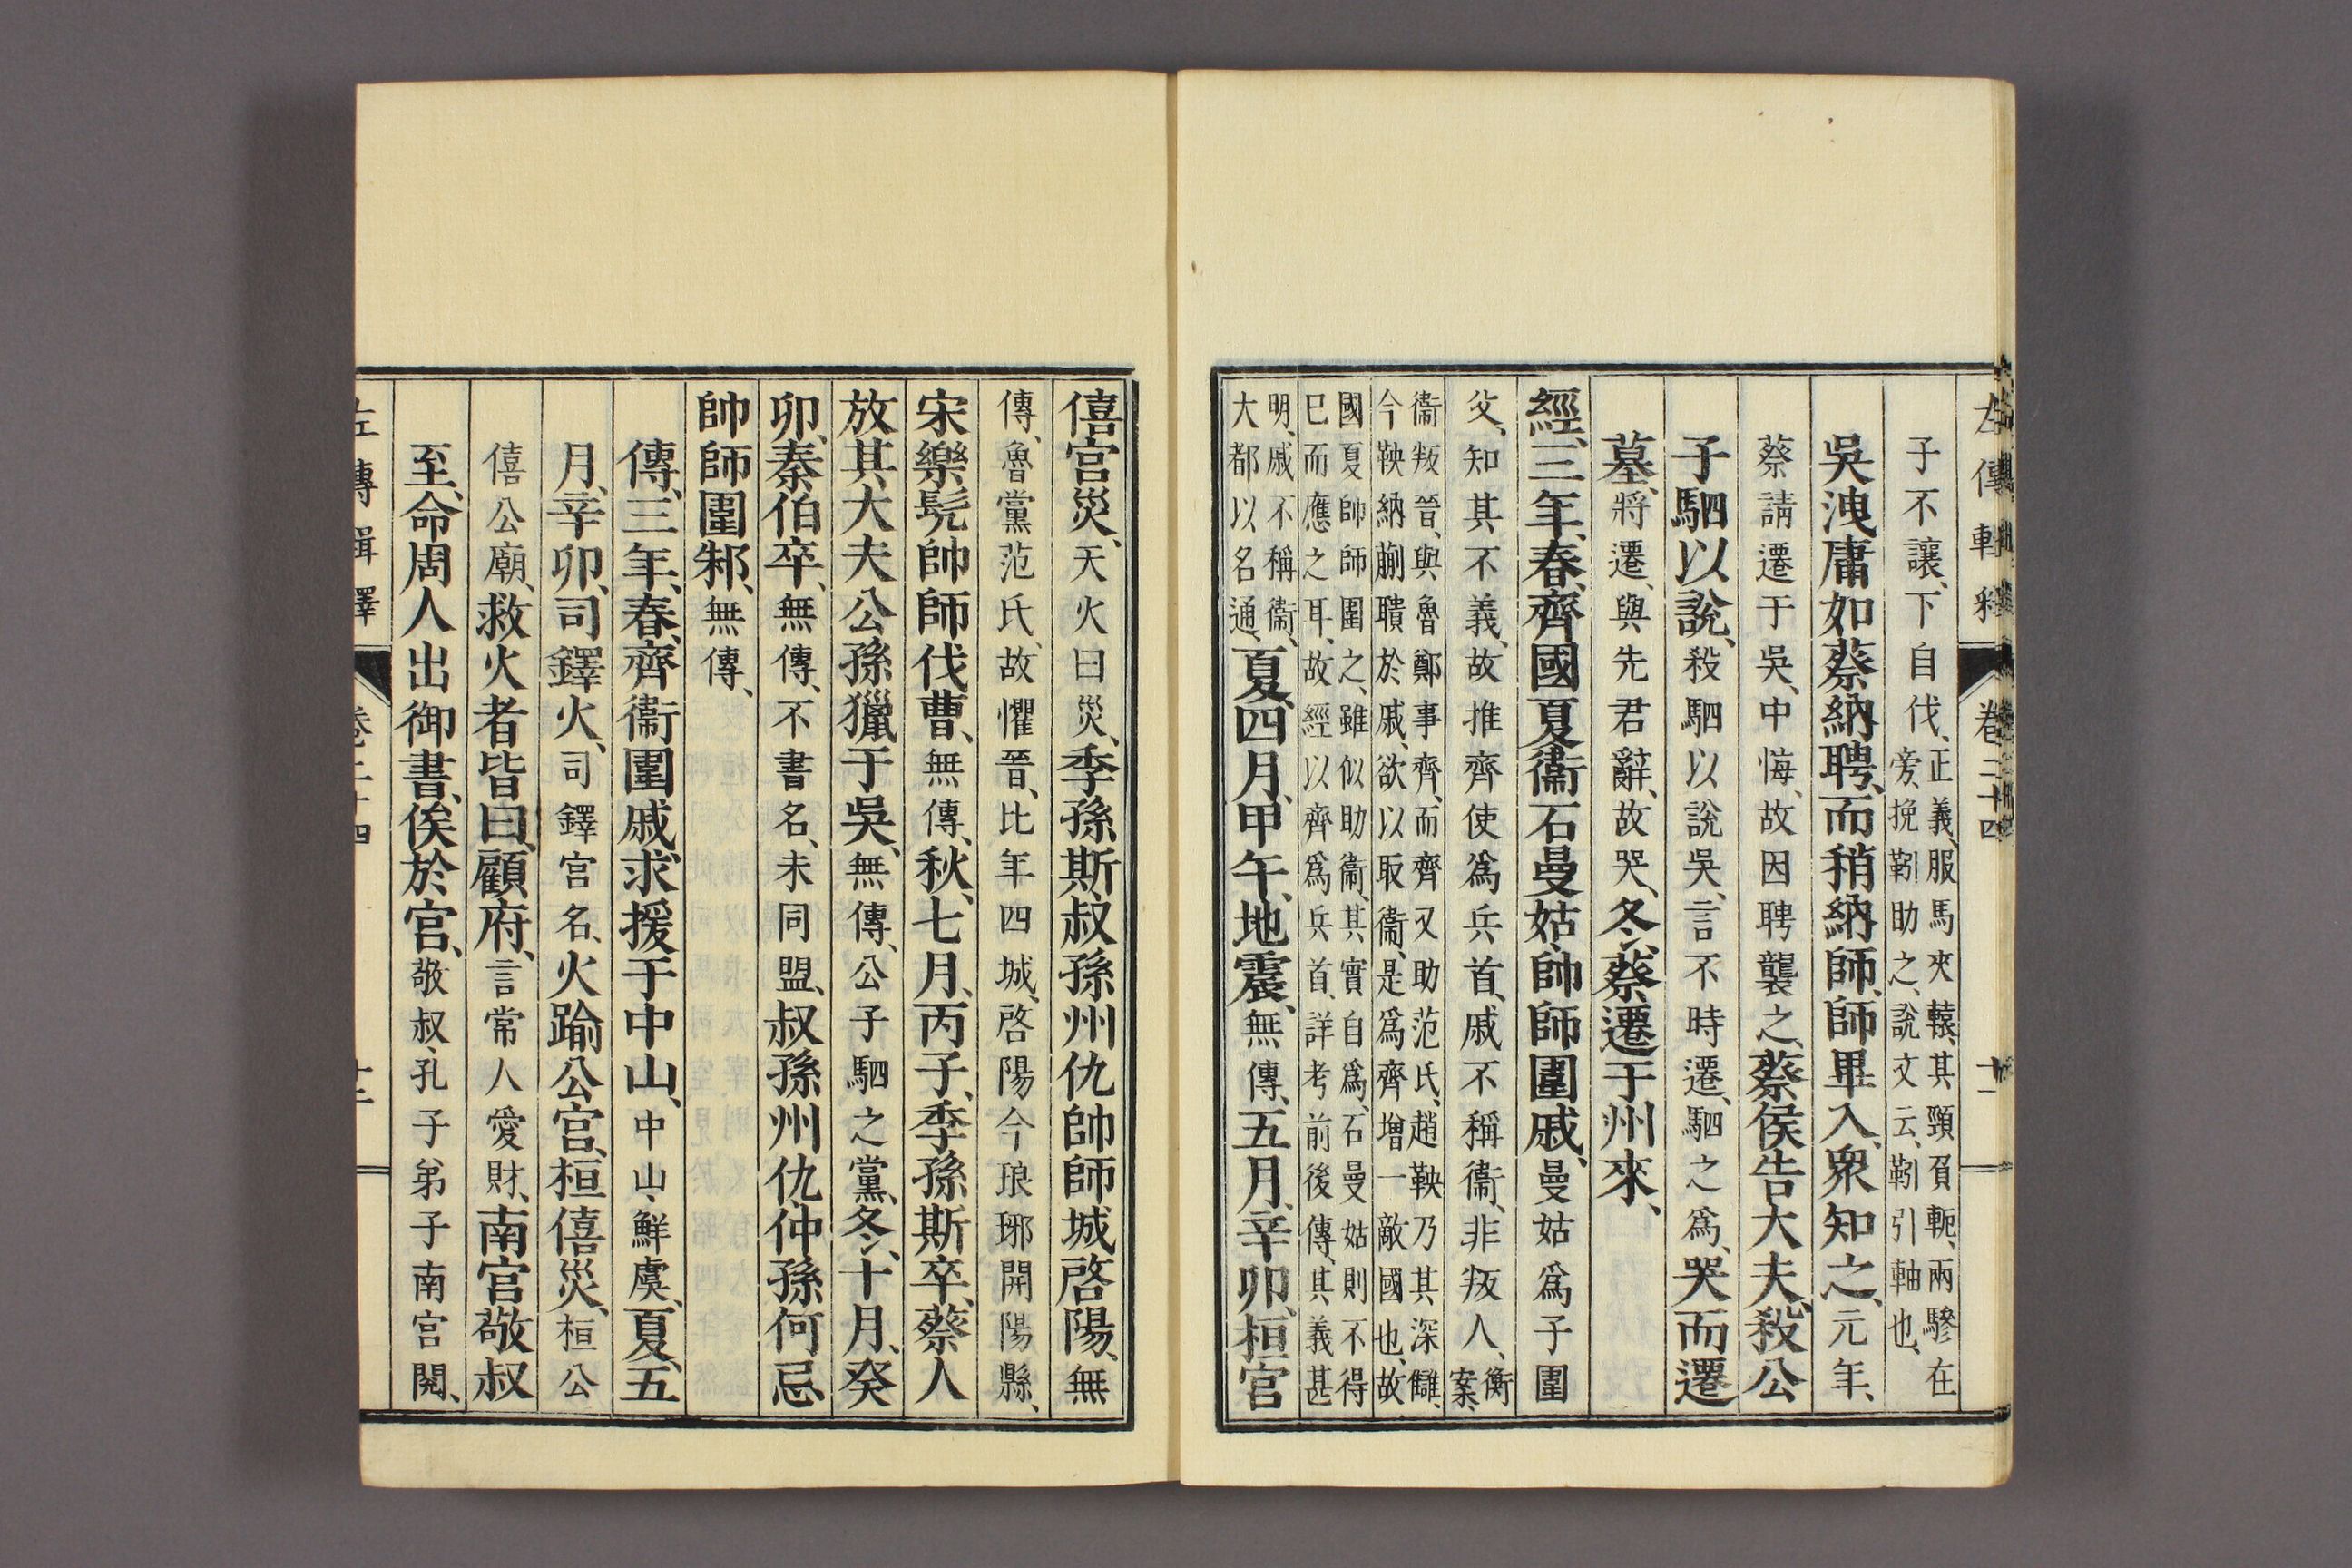 左傳輯釋 卷二十四 十一
子不讓、下自伐、正義、服馬夾轅、其頸負軛、兩驂在
旁挽靷助之、說文云、靷引軸也、
吳洩庸如蔡納聘、而稍納師、師畢入、衆知之、元年、
蔡請遷于吳、中悔、故因聘襲之、蔡侯告大夫、殺公
子駟以說、殺駟以說吳、言不時遷、駟之爲、哭而遷
墓、將遷、與先君辭、故哭、冬、蔡遷于州來、
經、三年、春、齊國夏衞石曼姑、帥師圍戚、曼姑爲子圍
父、知其不義、故推齊使爲兵首、戚不稱衞、非叛人、衡
案、
衞叛晉、與魯鄭事齊、而齊又助范氏、趙鞅乃其深讎、
今鞅納蒯聵於戚、欲以取衞、是爲齊增一敵國也、故
國夏帥師圍之、雖似助衞、其實自爲、石曼姑則不得
已而應之耳、故經以齊爲兵首、詳考前後傳、其義甚
明、戚不稱衞、
大都以名通、夏、四月、甲午、地震、無傳、五月、辛卯、桓宮
僖宮災、天火曰災、季孫斯、叔孫州仇帥師城啓陽、無
傳、魯黨范氏、故懼晉、比年四城、啓陽今琅琊開陽縣、
宋樂髡帥師伐曹、無傳、秋、七月、丙子、季孫斯卒、蔡人
放其大夫公孫獵于吳、無傳、公子駟之黨、冬、十月、癸
卯、秦伯卒、無傳、不書名、未同盟、叔孫州仇、仲孫何忌
帥師圍邾、無傳、
傳、三年、春、齊衞圍戚、求援于中山、中山、鮮虞、夏、五
月、辛卯、司鐸火、司鐸宮名、火踰公宮、桓僖災、桓公
僖公廟、救火者皆曰、顧府、言常人愛財、南宮敬叔
至、命周人出御書、俟於宮、敬叔、孔子弟子南宮閱、
左傳輯釋 卷二十四 十二